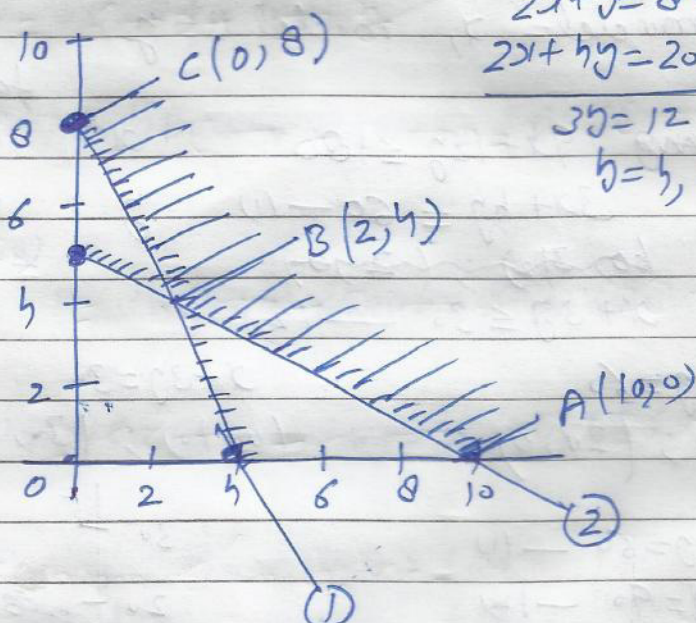 2x+y=8
2x+4y=20
3y=12
y=4,
10
C(0,8)
8
6
B(2,4)
4
2
A(10,0)
0 2 4 6 8 10
②
①